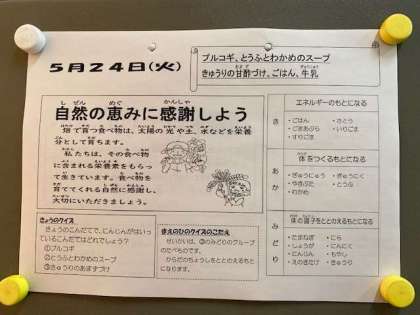 5月24日(火)
プルコギ、とうふとわかめのスープ
きゅうりの甘酢づけ、ごはん、牛乳
自然の恵みに感謝しよう
畑で育つ食べ物は、太陽の光や土、水などを栄養
分として育ちます。
私たちは、その食べ物
に含まれる栄養素をもらっ
て生きています。食べ物を
育ててくれる自然に感謝し、
大切にいただきましょう。
きょうのクイズ
きょうのこんだてで、にんじんがはいっ
ているこんだてはどれでしょう?
①プルコギ
②とうふとわかめのスープ
③きゅうりのあまずづけ
きえのひのクイズのこたえ
せいかいは、③のみどりのグループ
のたべものです。
からだのちょうしをととのえるもとに
なります。
き
エネルギーのもとになる
・ごはん ・さとう
・ごまあぶら ・いりごま
・すりごま
あか
体をつくるもとになる
・ぎゅうにゅう ・ぎゅうにく
・やきぶた ・とうふ
・わかめ
みどり
体の調子をととのえるもとになる
・たまねぎ ・にら
・しょうが ・にんにく
・にんじん ・もやし
・えのきたけ ・きゅうり